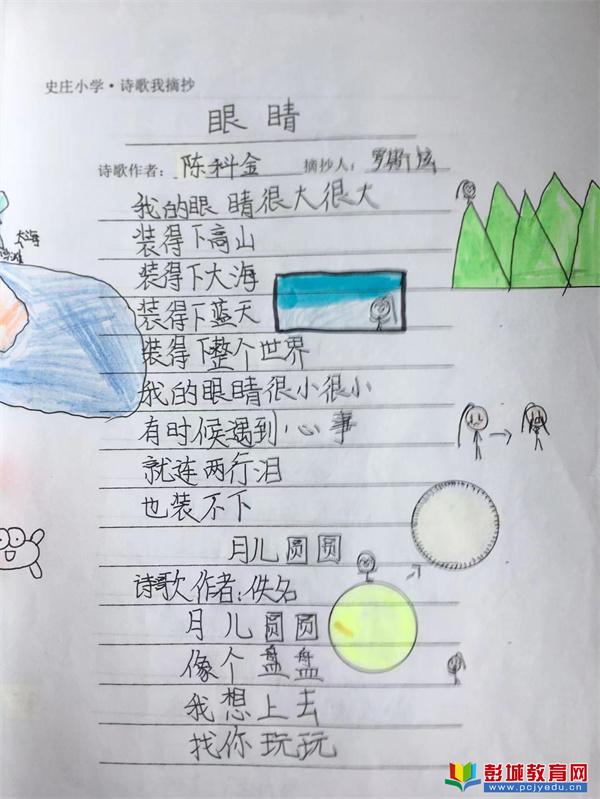 史庄小学·诗歌我摘抄
眼睛
诗歌作者：陈科金 摘抄人：
我的眼睛很大很大
装得下高山
装得下大海
装得下蓝天
装得下整个世界
我的眼睛很小很小
有时候遇到心事
就连两行泪
也装不下
月儿圆圆
诗歌作者：佚名
月儿圆圆
像个盘盘
我想上去
找你玩玩
大海
彭城教育网
www.pcjyedu.cn